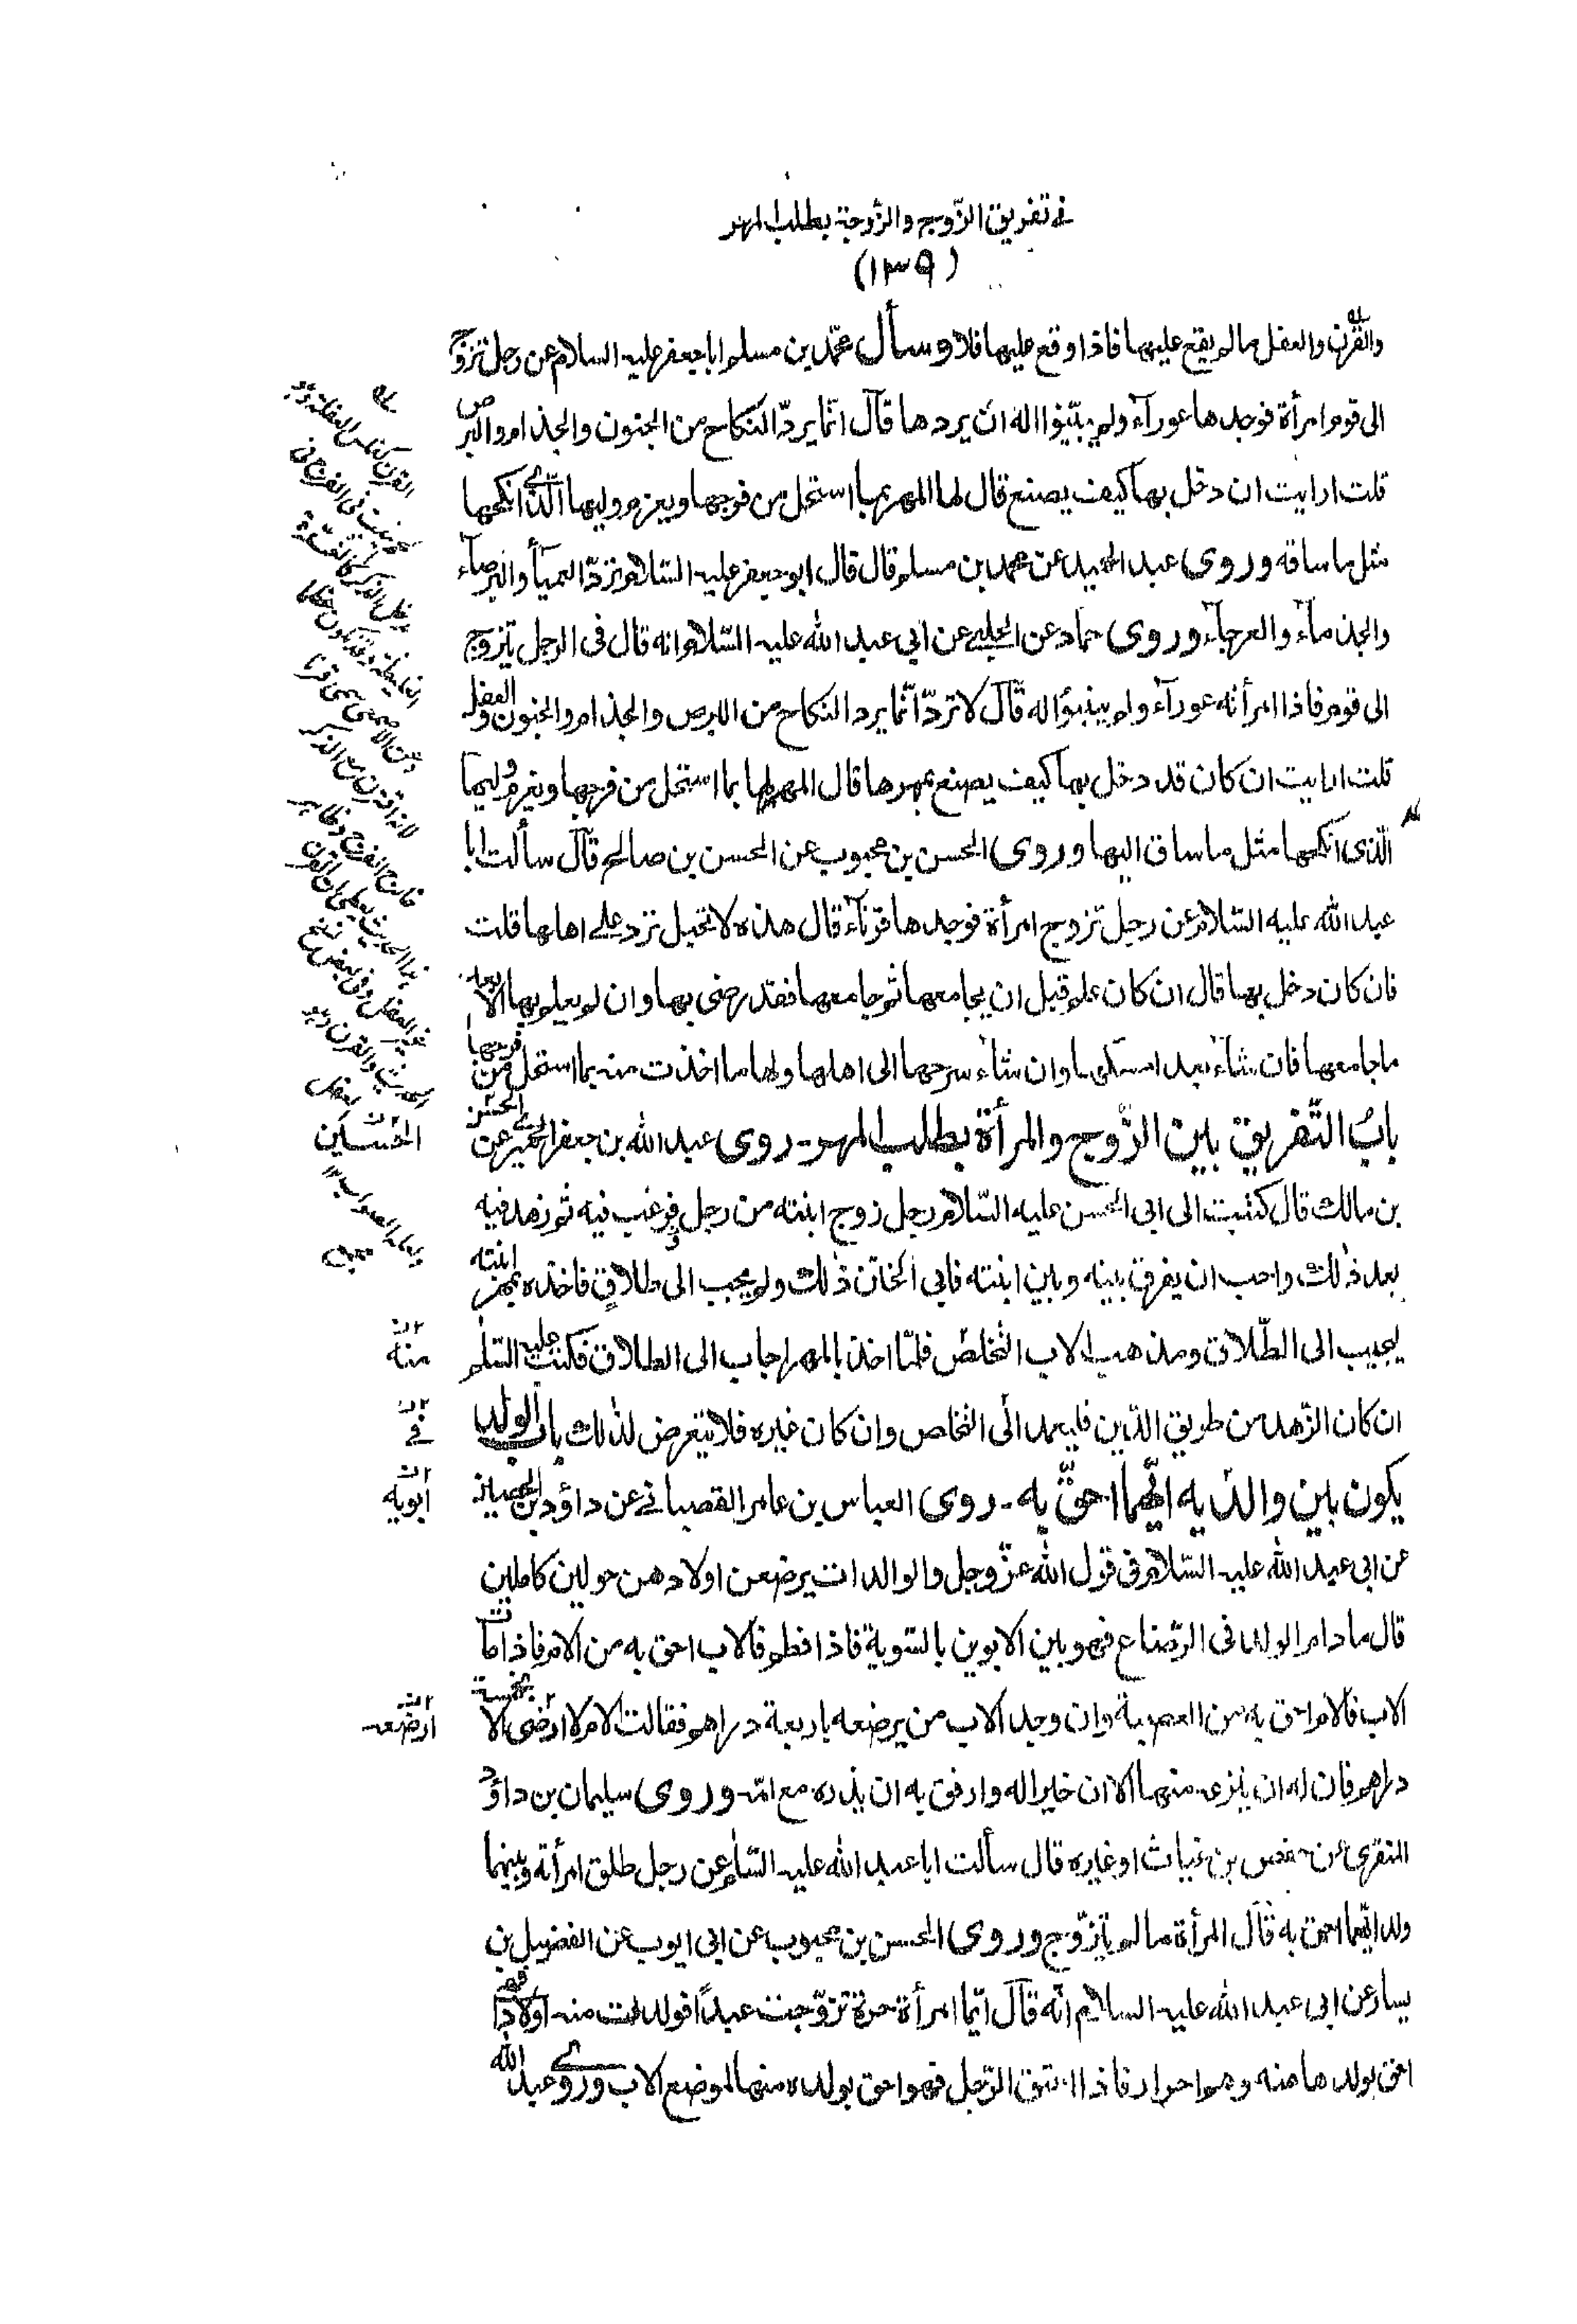 في تفريق الزّوج والزّوجة بطلب المهر
(١٣٩)
والقرن والعفل مالم يقع عليها فاذا وقع عليها فلا وسأل محمّد بن مسلم ابا جعفر عليه السلام عن رجل تزوّج
الى قوم امرأة فوجدها عورآء ولم يبيّنوا له ان يردها قآل انّما يردّ النكاح من الجنون والجذام والبرص
قلت ارايت ان دخل بها كيف يصنع قال لها المهر بما استحل من فرجها ويغرم وليها الّذي انكحها
مثل ما ساقه وروى عبد الحميد عن محمد بن مسلم قال قال ابو جعفر عليه السّلام تردّ العميآء والبرصآء
والجذمآء والعرجآء وروى حماد عن الحلبي عن ابي عبد الله عليه السّلام انه قال في الرجل تيزوج
الى قوم فاذا امرأته عورآء ولم يبينوا له قآل لا تردّ انّما يرد النكاح من البرص والجذام والجنون والعفل
قلت ارايت ان كان قد دخل بها كيف يصنع بمهرها قال المهر لها بما استحل من فرجها ويغرم وليها
الّذي انكحها مثل ما ساق اليها وروى الحسن بن محبوب عن الحسن بن صالح قآل سألت ابا
عبد الله عليه السّلام عن رجل تزوج امرأة فوجدها قرنآء قال هذه لا تحبل ترد على اهلها قلت
فان كان دخل بها قال ان كان علم قبل ان يجامعها ثم جامعها فقد رضى بها وان لم يعلم بها الا بعد
ما جامعها فان شآء بعد امسكها وان شآء سرحها الى اهلها ولها ما اخذت منه بما استحل من فرجها
بابُ التّفريق بين الزّوج والمرأة بطلب المهر ـ روى عبد الله بن جعفر الحميري عن الحسن
بن مالك قال كتبت الى ابي الحسن عليه السّلام رجل زوج ابنته من رجل فرغب فيه ثم زهد فيه
بعد ذلك واحب ان يفرق بينه وبين ابنته فابى الختن ذلك ولم يجب الى طلاق فاخذه بمهر ابنته
ليجيب الى الطّلاق ومذهب الاب التخلص فلمّا اخذ بالمهر اجاب الى الطلاق فكتب عليه السّلم
ان كان الزّهد من طريق الدّين فليعمد الى التخلص وان كان غيره فلا يتعرض لذلك باب الولد
يكون بين والديه ايّهما احقّ به ـ روى العباس بن عامر القصباني عن داؤد بن الحصين
عن ابي عبد الله عليه السّلام في قول الله عزّ وجل والوالدات يرضعن اولادهن حولين كاملين
قال ما دام الولد في الرّضاع فهو بين الابوين بالسّوية فاذا فطم فالاب احق به من الام فاذا مات
الاب فالام احق به من العصبة وان وجد الاب من يرضعه باربعة دراهم فقالت الام لا ارضى الا بخمسة
دراهم فان له ان ينزعه منها الا ان خيرا له وارفق به ان يذره مع امّه وروى سليمان بن داؤد
المنقرى عن حفص بن غياث او غيره قال سألت ابا عبد الله عليه السّلم عن رجل طلق امرأته وبينهما
ولد ايّهما احق به قآل المرأة مالم يتزوّج وروى الحسن بن محبوب عن ابى ايوب عن الفضيل بن
يسار عن ابى عبد الله عليه السلام انّه قآل ايّما امرأة حرة تزوّجت عبدًا فولدت منه اولادا فهي
احق بولدها منه وهم احرار فاذا اعتق الرّجل فهو احق بولده منها لموضع الاب وروى عبد الله
القرن
الحسين
منه
في
ابويه
ارضعه